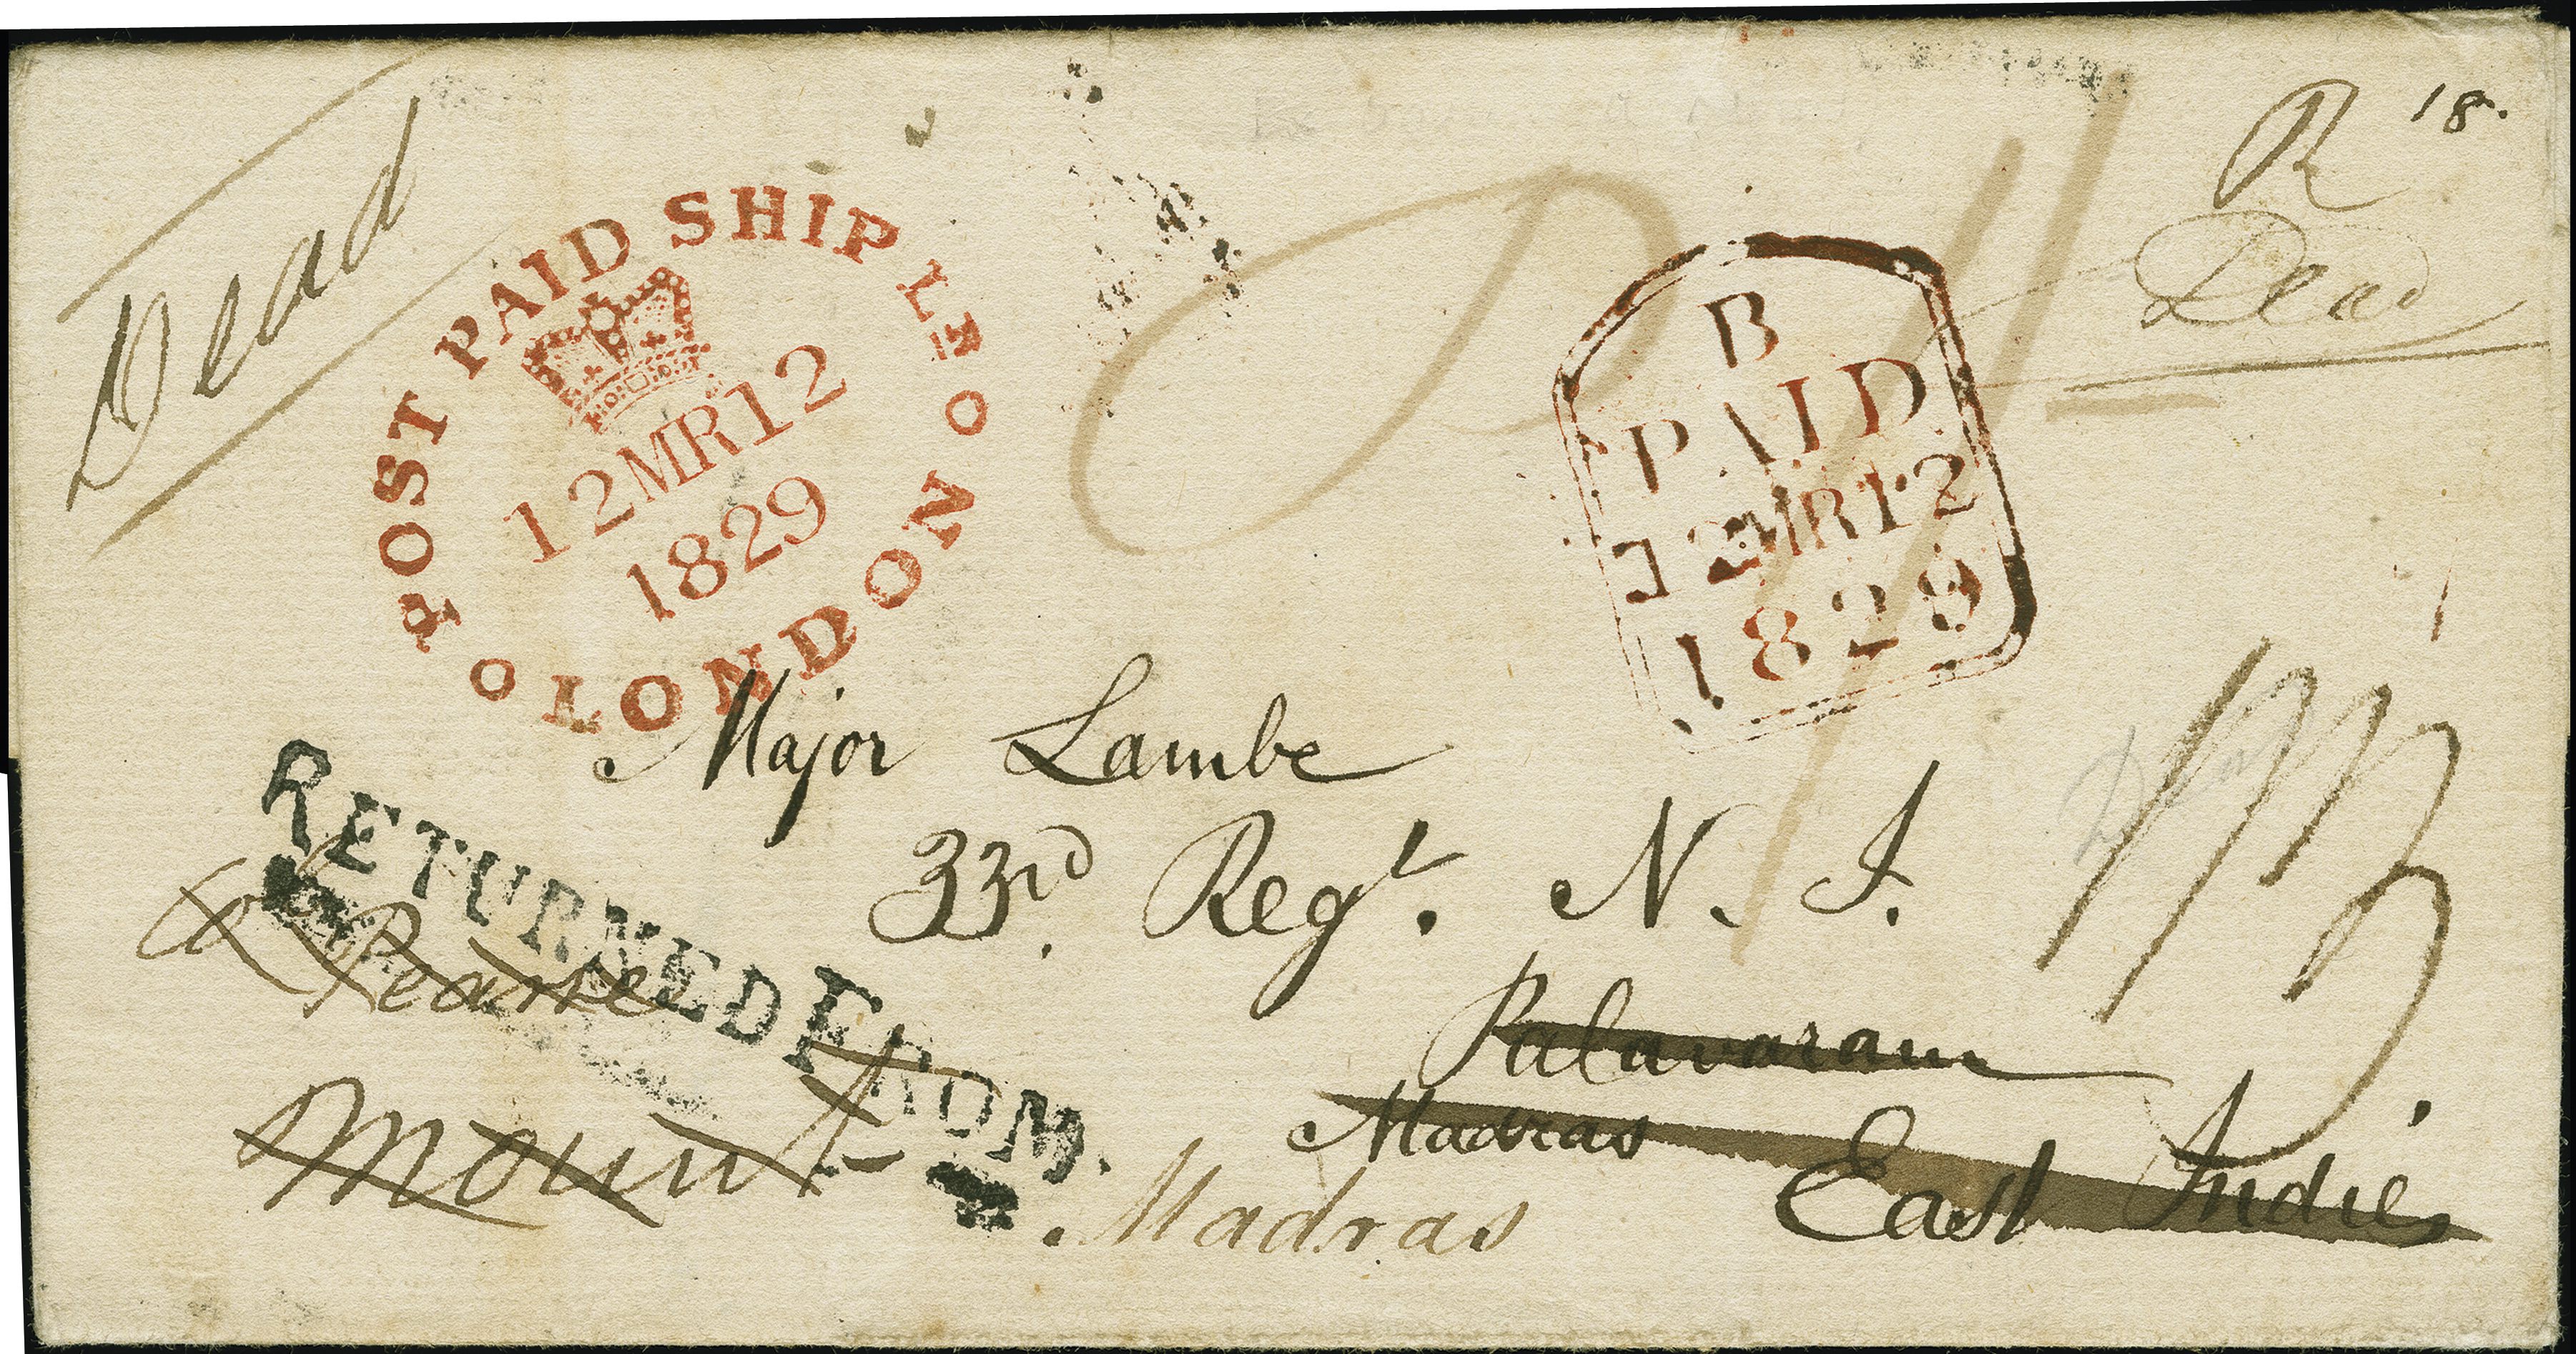 Dead
R 18.
Dead
POST PAID SHIP LR O LONDON O
12MR12
1829
B
PAID
12MR12
1829
Major Lambe
33rd Regt. N. I.
Palavaram
Madras
East Indies
Madras
RETURNED FROM.
Mount